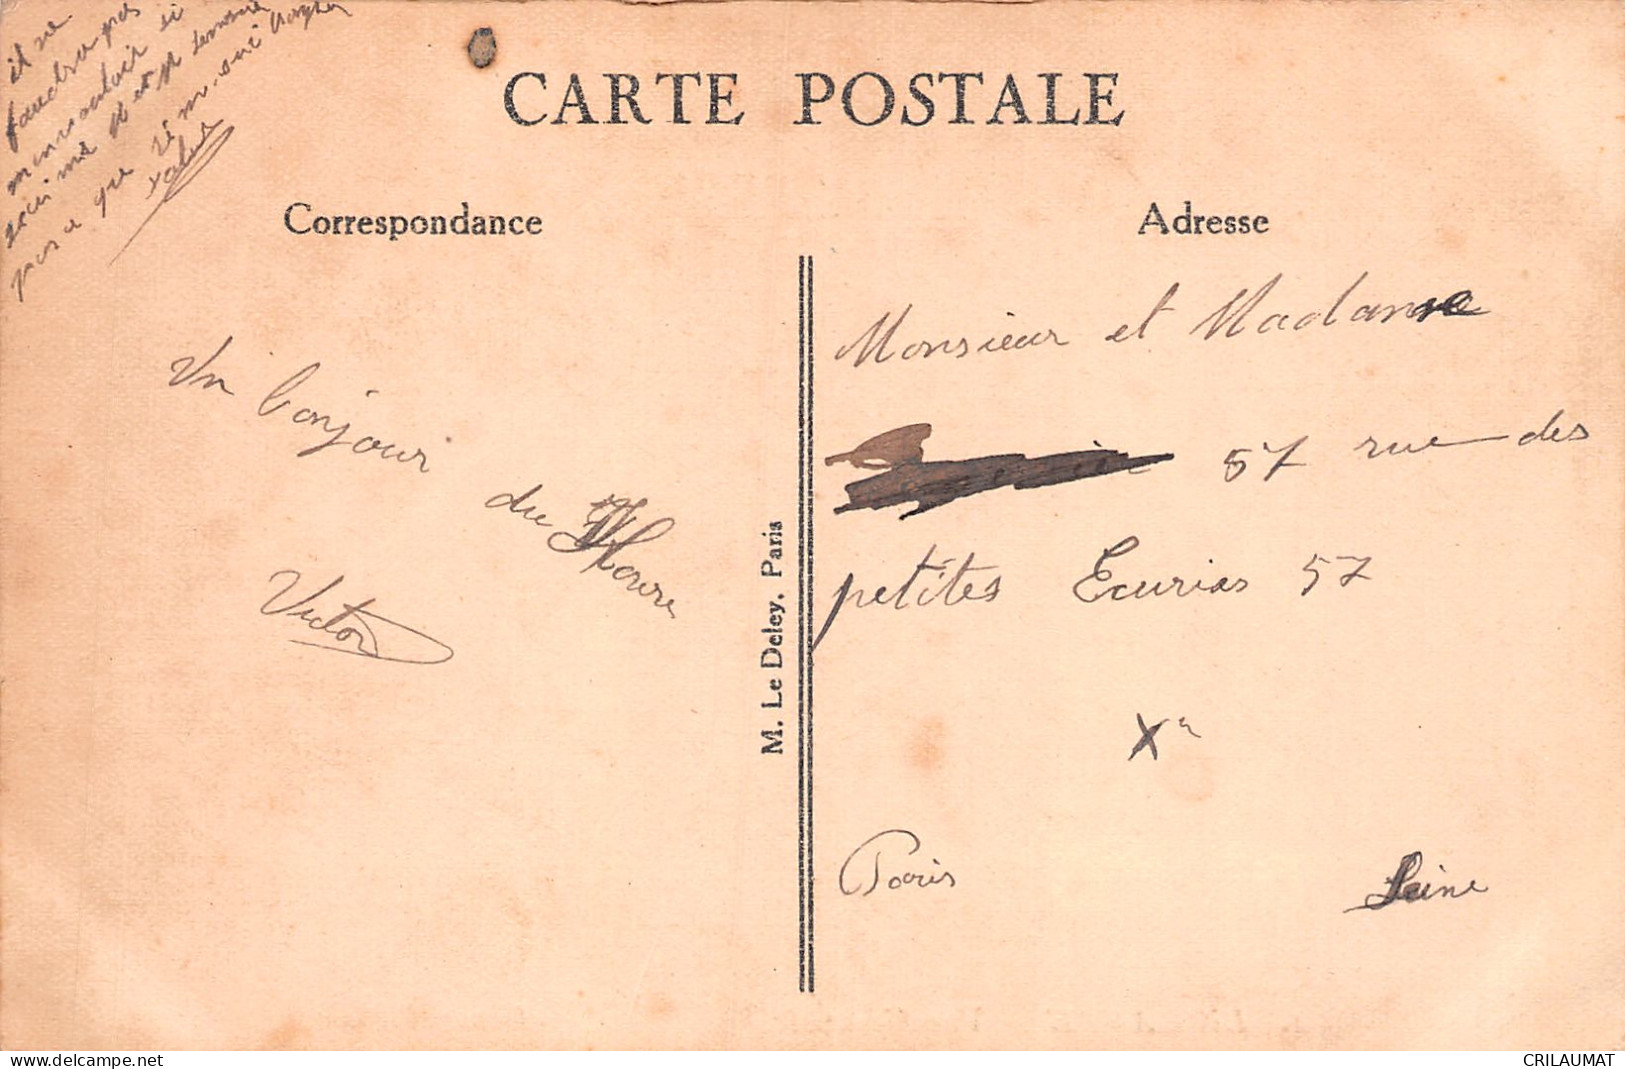 il ne
faudra pas
m'en vouloir si
que
CARTE POSTALE
Correspondance
Adresse
Un bonjour
du Havre
Victor
M. Le Deley, Paris
Monsieur et Madame
57 rue des
petites Ecuries 57
Xe
Paris
Seine
www.delcampe.net
CRILAUMAT